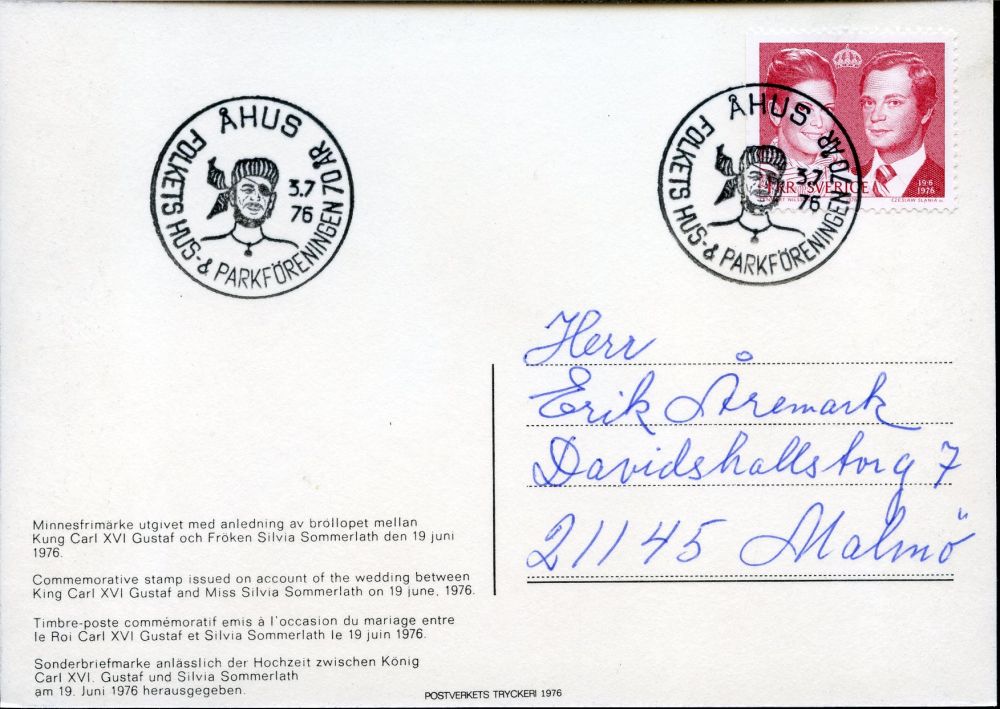 ÅHUS
FOLKETS HUS- & PARKFÖRENINGEN 70 ÅR
3.7
76
ÅHUS
FOLKETS HUS- & PARKFÖRENINGEN 70 ÅR
3.7
76
SVERIGE
19·6
1976
CZESLAW SLANIA
Herr
Erik Åremark
Davidshallstorg 7
21145 Malmö
Minnesfrimärke utgivet med anledning av bröllopet mellan
Kung Carl XVI Gustaf och Fröken Silvia Sommerlath den 19 juni
1976.
Commemorative stamp issued on account of the wedding between
King Carl XVI Gustaf and Miss Silvia Sommerlath on 19 june, 1976.
Timbre-poste commémoratif emis à l'occasion du mariage entre
le Roi Carl XVI Gustaf et Silvia Sommerlath le 19 juin 1976.
Sonderbriefmarke anlässlich der Hochzeit zwischen König
Carl XVI. Gustaf und Silvia Sommerlath
am 19. Juni 1976 herausgegeben.
POSTVERKETS TRYCKERI 1976